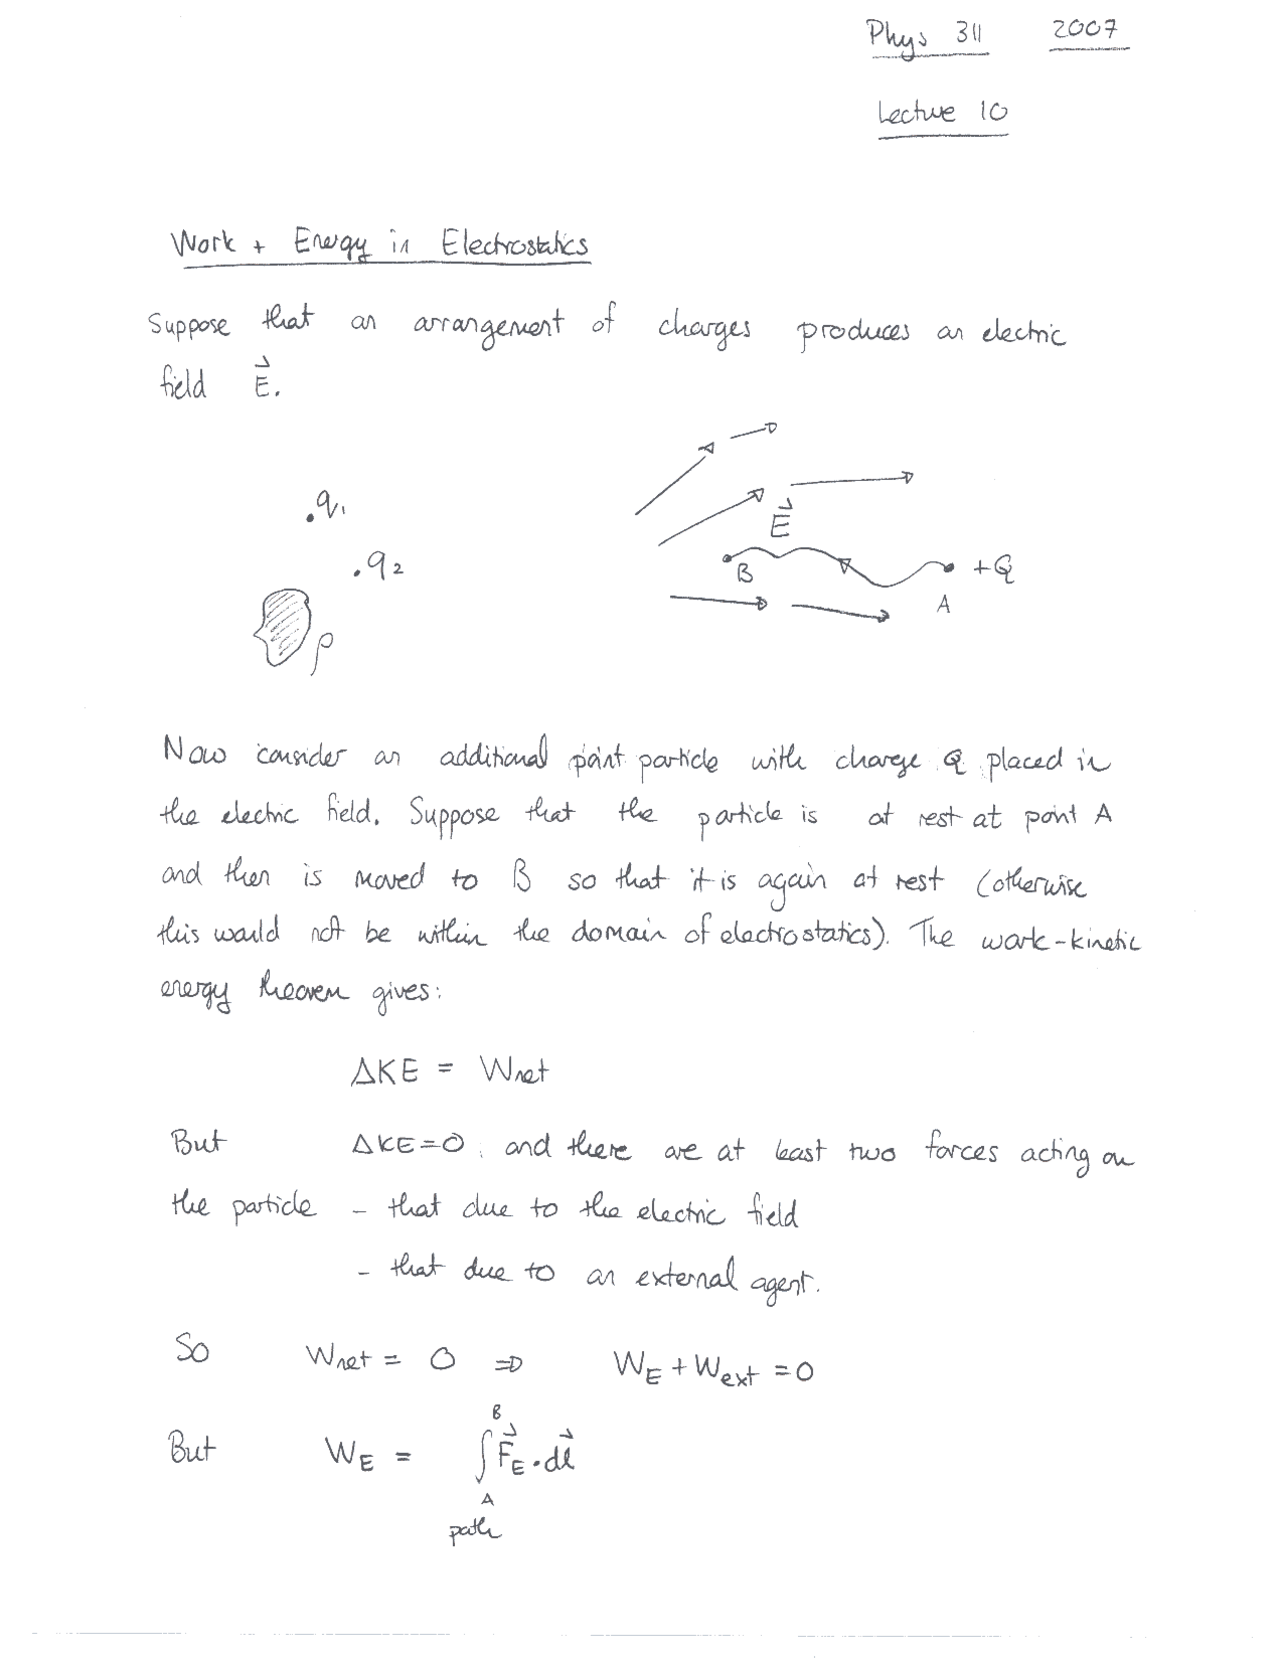 Phys 311 2007
Lecture 10
Work + Energy in Electrostatics
Suppose that an arrangement of charges produces an electric
field E⃗.
.q₁
E⃗
.q₂
B
+Q
A
ρ
Now consider an additional point particle with charge Q placed in
the electric field. Suppose that the particle is at rest at point A
and then is moved to B so that it is again at rest (otherwise
this would not be within the domain of electrostatics). The work-kinetic
energy theorem gives:
ΔKE = Wnet
But ΔKE=0 and there are at least two forces acting on
the particle - that due to the electric field
- that due to an external agent.
So Wnet = 0 ⇒ W_E + W_ext = 0
But W_E = ∫_A^B F⃗_E · dl⃗
path